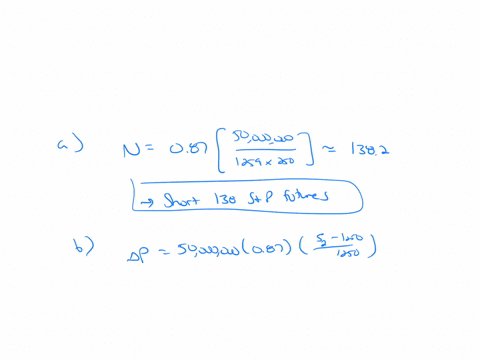 a) N = 0.87 [ 50,000,000 / 1259 × 250 ] ≈ 138.2
→ Short 138 S+P futures
b) ΔP = 50,000,000 (0.87) ( S₂ - 1250 / 1250 )